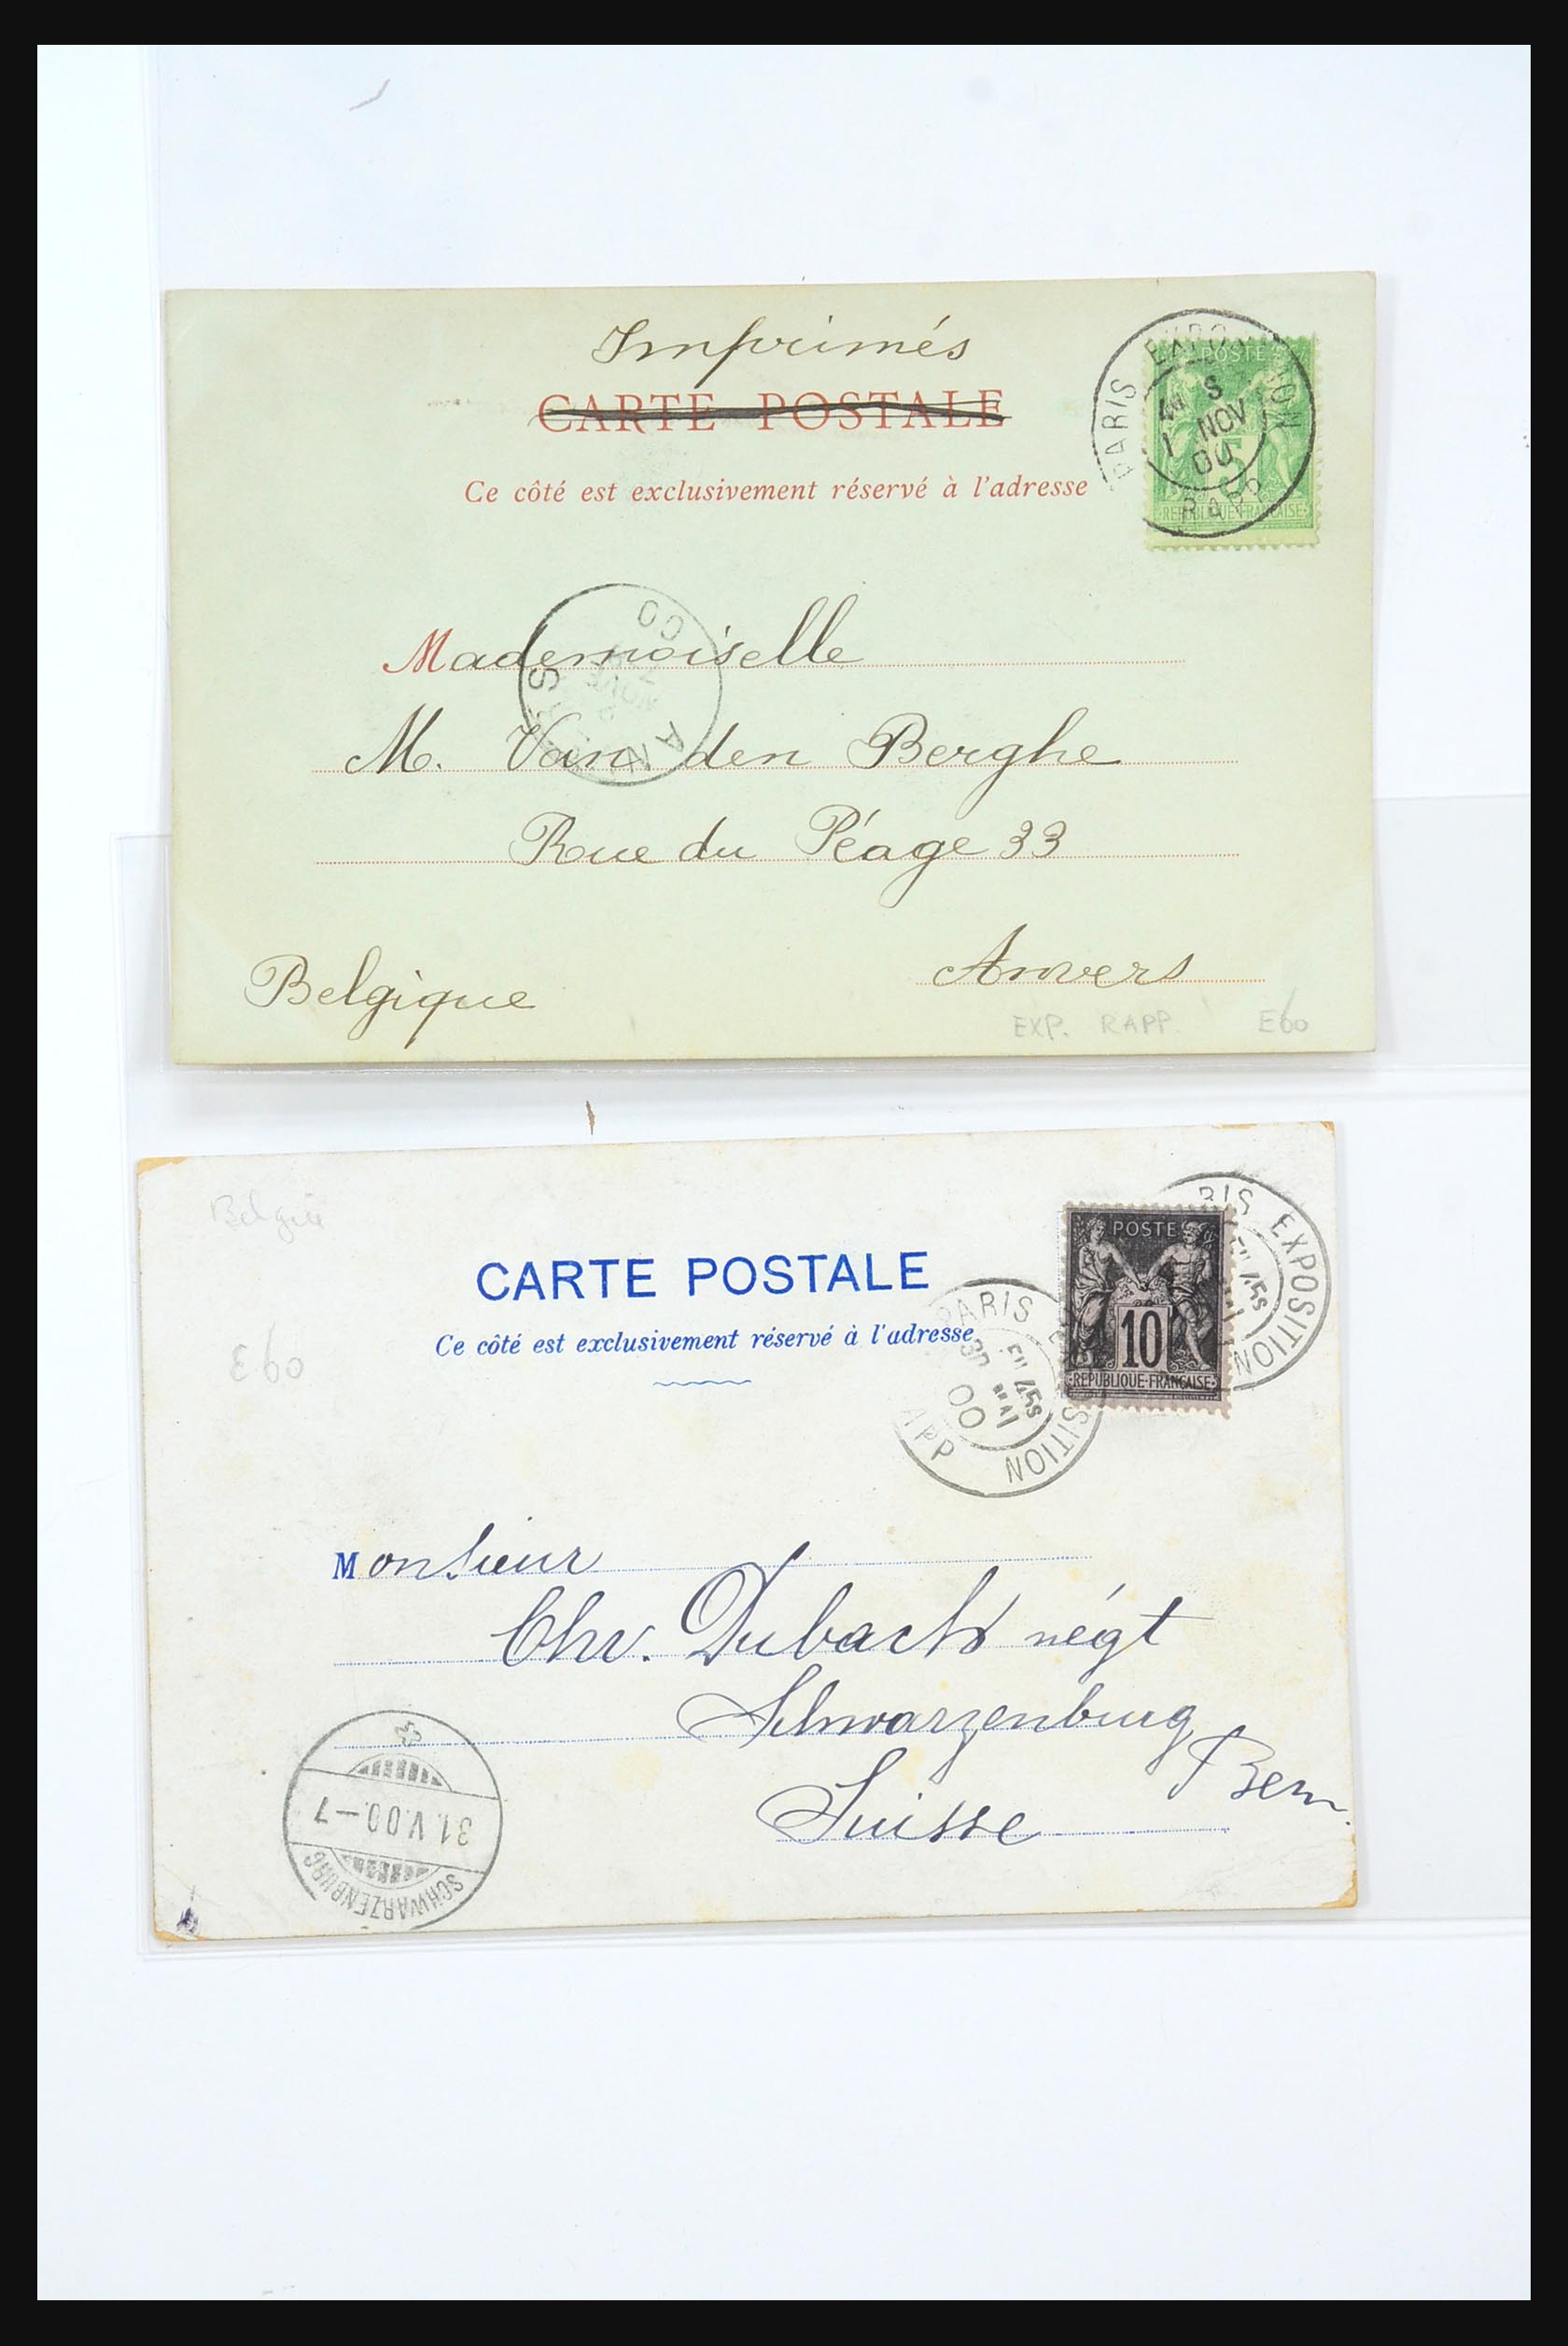 Imprimés
CARTE POSTALE
Ce côté est exclusivement réservé à l'adresse
PARIS EXPOSITION
S
1 NOV
00
RAPP
POSTE
5
REPUBLIQUE FRANÇAISE
Mademoiselle
M. Van den Berghe
Rue du Péage 33
Anvers
Belgique
EXP. RAPP. E60
Belgie
E60
CARTE POSTALE
Ce côté est exclusivement réservé à l'adresse
POSTE
10
REPUBLIQUE-FRANÇAISE
PARIS EXPOSITION
PARIS EXPOSITION
30 MAI
00
RAPP
Monsieur
Chr. Dubach négt
Schwarzenburg
Bern.
Suisse
31.V.00.-7
SCHWARZENBURG